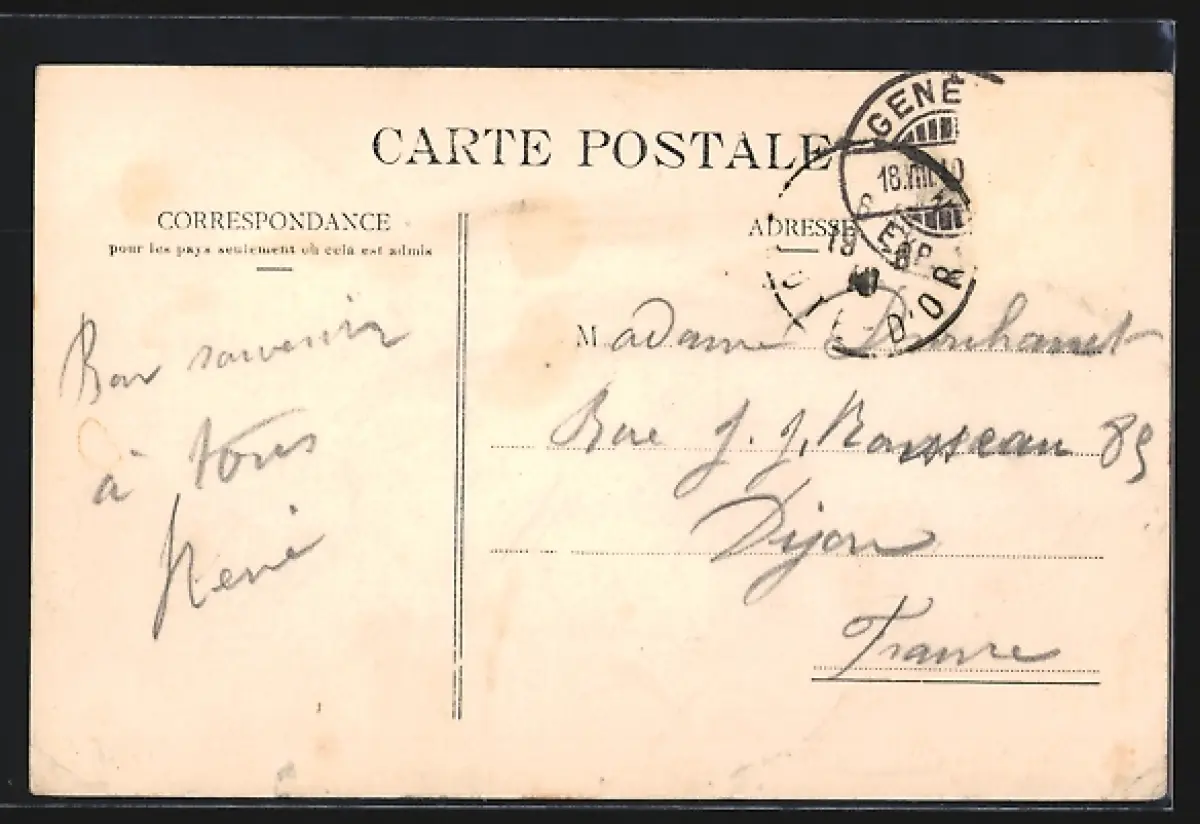 CARTE POSTALE
CORRESPONDANCE
pour les pays seulement où cela est admis
ADRESSE
GENÈ
18.VIII.10
EXP.
19 8
10
D'OR
Bon souvenir
à tous
René
Madame
Rue J. J. Rousseau 85
Dijon
France